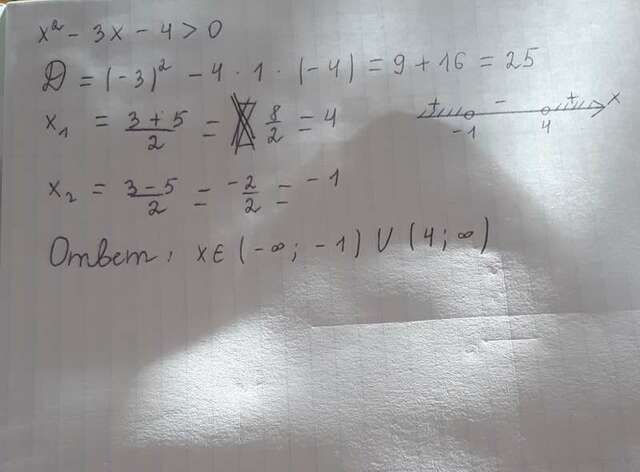 x² - 3x - 4 > 0
D = (-3)² - 4 · 1 · (-4) = 9 + 16 = 25
x₁ = (3 + 5)/2 = 8/2 = 4
+ - + x
-1 4
x₂ = (3 - 5)/2 = -2/2 = -1
Ответ: x ∈ (-∞; -1) ∪ (4; ∞)